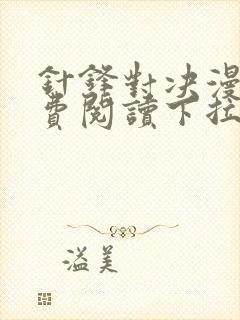 針鋒對决漫
費閱讀下拉
溢美